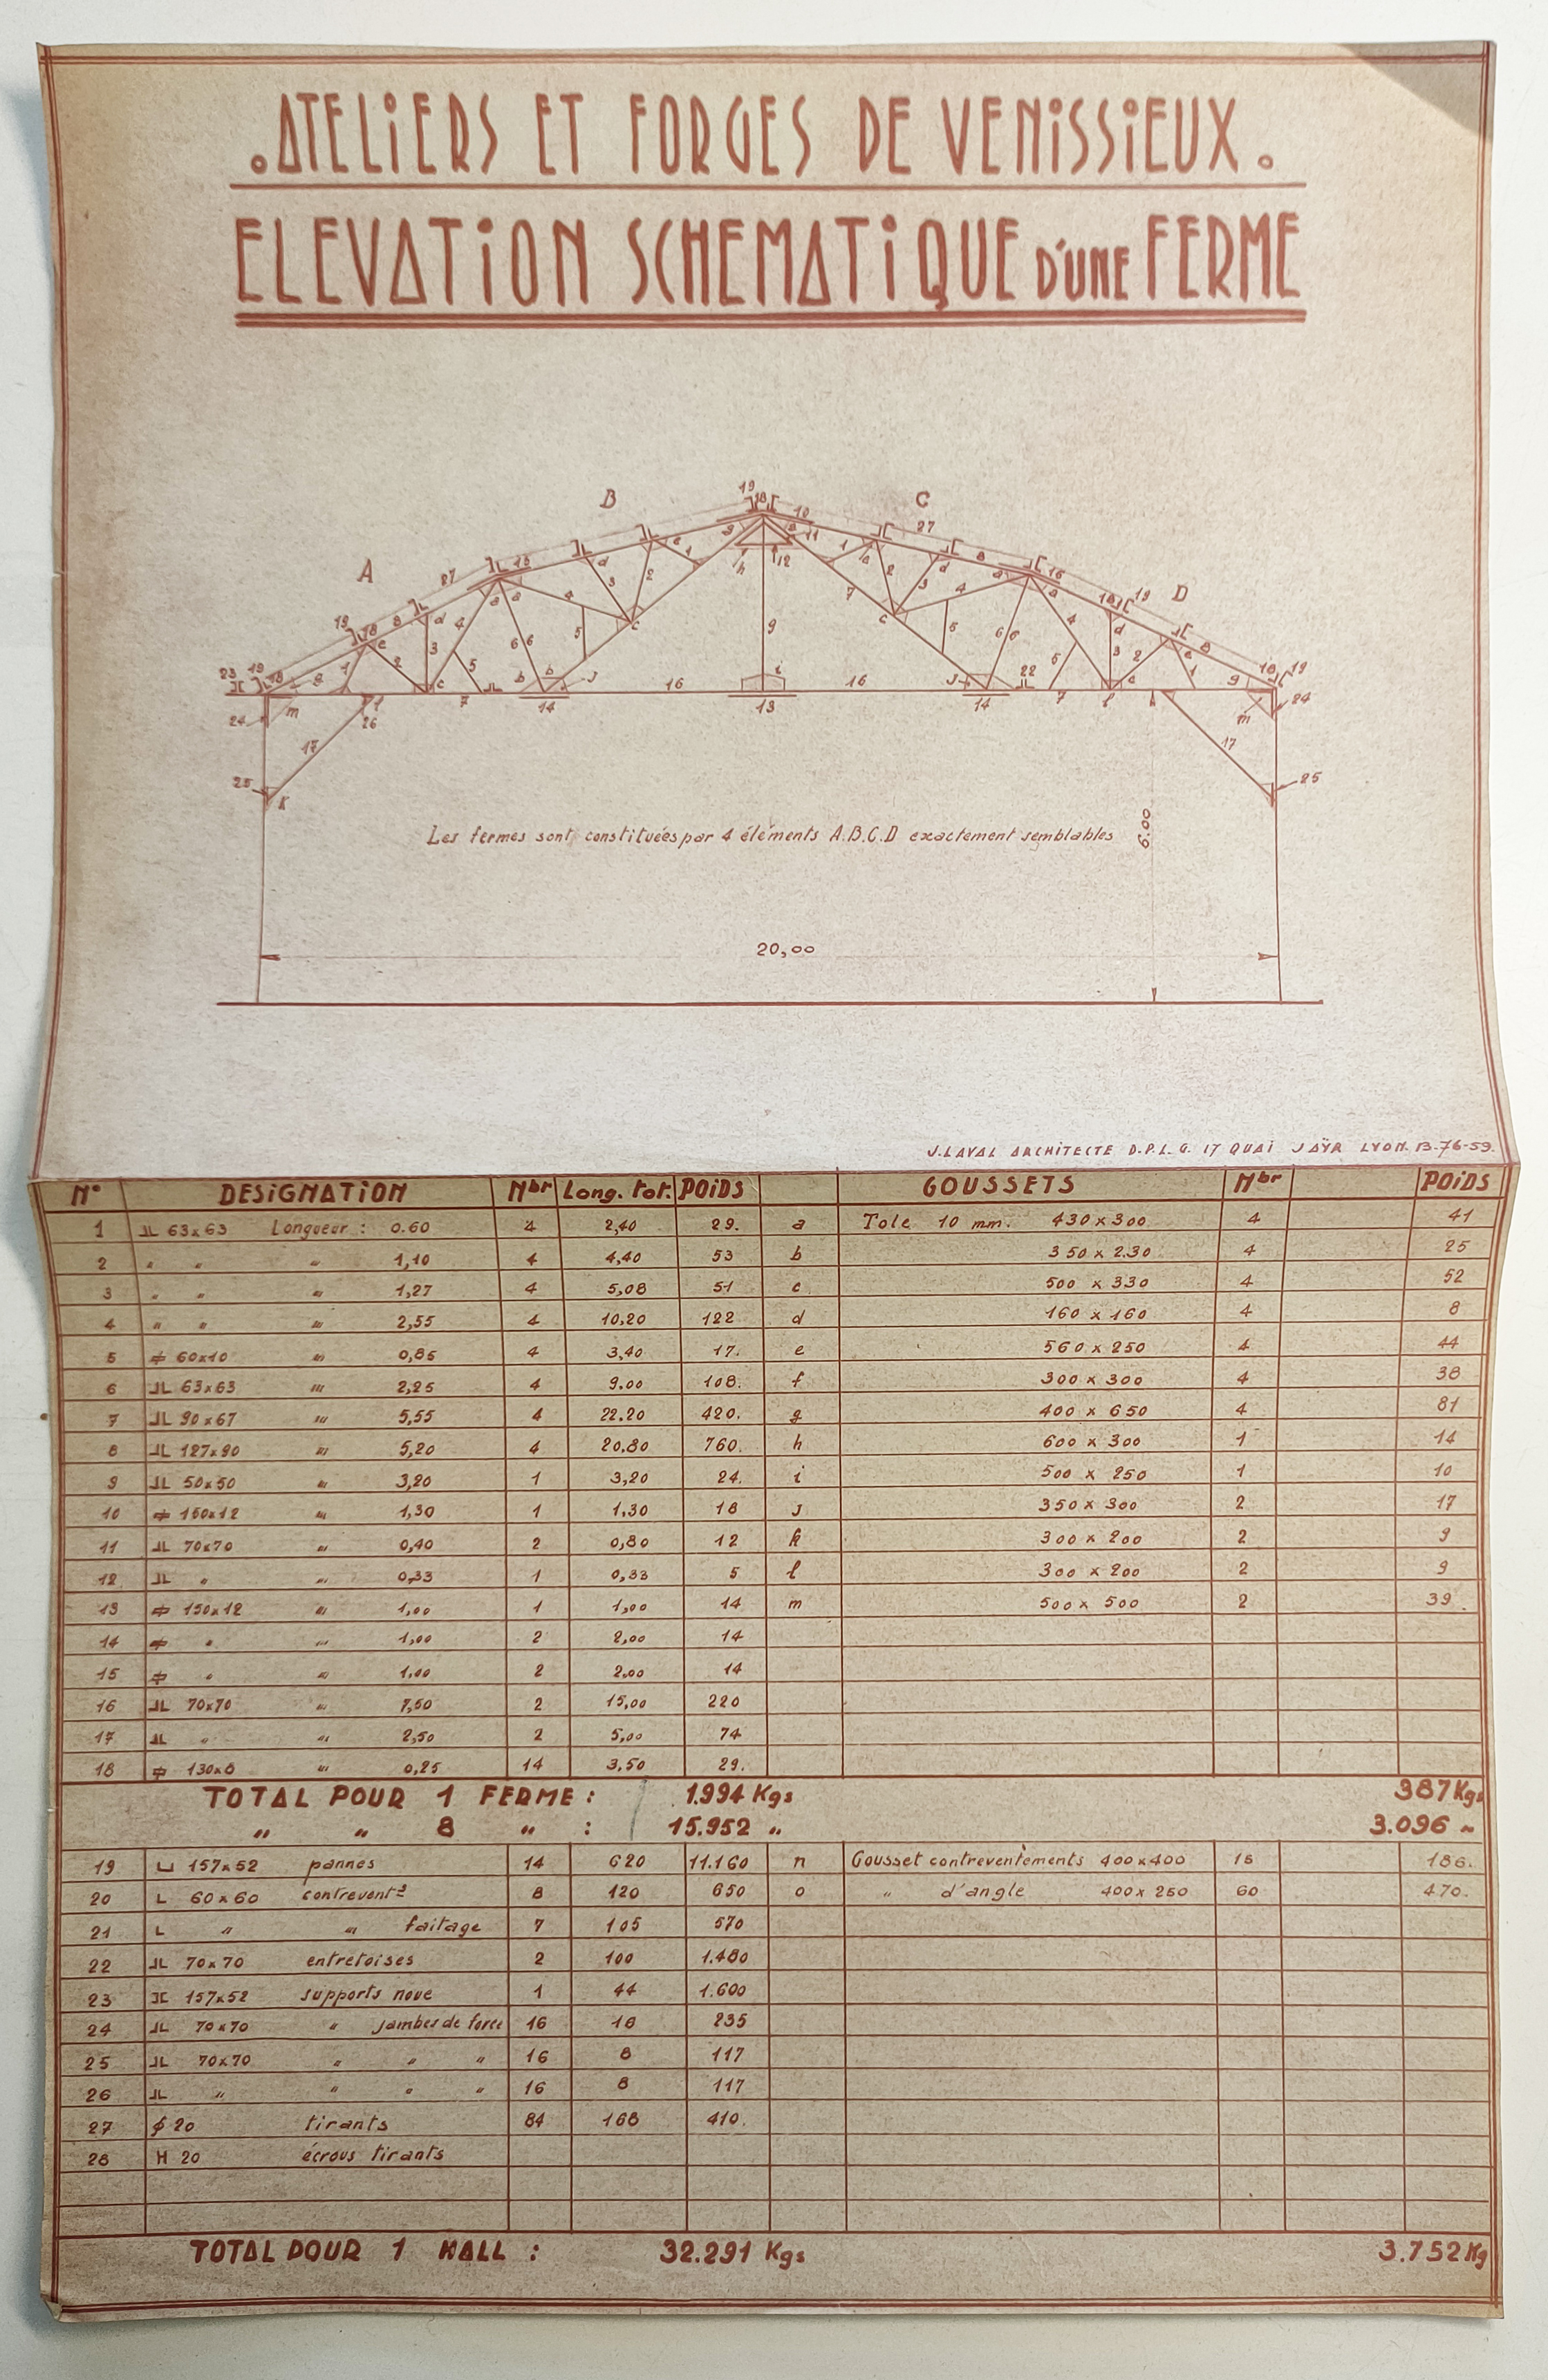 .ATELiERS ET FORGES DE VENiSSiEUX.
ELEVATiON SCHEMATiQUE D'UNE FERME
A B C D
Les fermes sont constituées par 4 éléments A.B.C.D exactement semblables
6.00
20,00
J.LAVAL ARCHiTECTE D.P.L.G. 17 QUAi JAŸR LYON. B.76-59.
N° DESiGNATiON Nbr Long. tot. POiDS GOUSSETS Nbr POiDS
1 63x63 Longueur : 0.60 4 2,40 29. a Tole 10 mm. 430x300 4 41
2 " " " 1,10 4 4,40 53 b 350 x 230 4 25
3 " " " 1,27 4 5,08 51 c 500 x 330 4 52
4 " " " 2,55 4 10,20 122 d 160 x 160 4 8
5 60x10 " 0,85 4 3,40 17. e 560 x 250 4 44
6 63x63 " 2,25 4 9.00 108. f 300 x 300 4 38
7 90x67 " 5,55 4 22.20 420. g 400 x 650 4 81
8 127x90 " 5,20 4 20,80 760. h 600 x 300 1 14
9 50x50 " 3,20 1 3,20 24. i 500 x 250 1 10
10 150x12 " 1,30 1 1,30 18 j 350 x 300 2 17
11 70x70 " 0,40 2 0,80 12 k 300 x 200 2 9
12 " " 0,33 1 0,33 5 l 300 x 200 2 9
13 150x12 " 1,00 1 1,00 14 m 500 x 500 2 39.
14 " " 1,00 2 2,00 14
15 " " 1,00 2 2,00 14
16 70x70 " 7,50 2 15,00 220
17 " " 2,50 2 5,00 74
18 130x8 " 0,25 14 3,50 29.
TOTAL POUR 1 FERME : 1.994 Kgs 387 Kgs
" " 8 " : 15.952 " 3.096 "
19 157x52 pannes 14 620 11.160 n Gousset contreventements 400x400 18 186.
20 L 60x60 contrevent² 8 120 650 o " d'angle 400x250 60 470.
21 L " " faitage 7 105 570
22 70x70 entretoises 2 100 1.480
23 157x52 supports noue 1 44 1.600
24 70x70 " jambes de force 16 16 235
25 70x70 " " " 16 8 117
26 " " " " 16 8 117
27 ϕ 20 tirants 84 168 410.
28 H 20 écrous tirants
TOTAL POUR 1 HALL : 32.291 Kgs 3.752 Kg